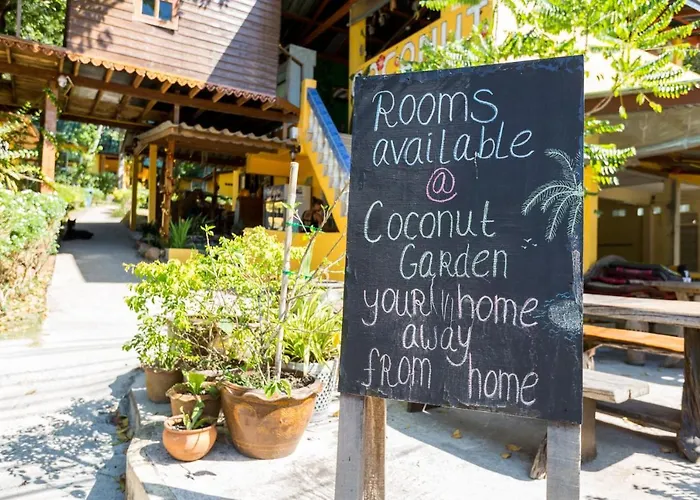 CONUT
Rooms
available
@
Coconut
Garden
your home
away
from home